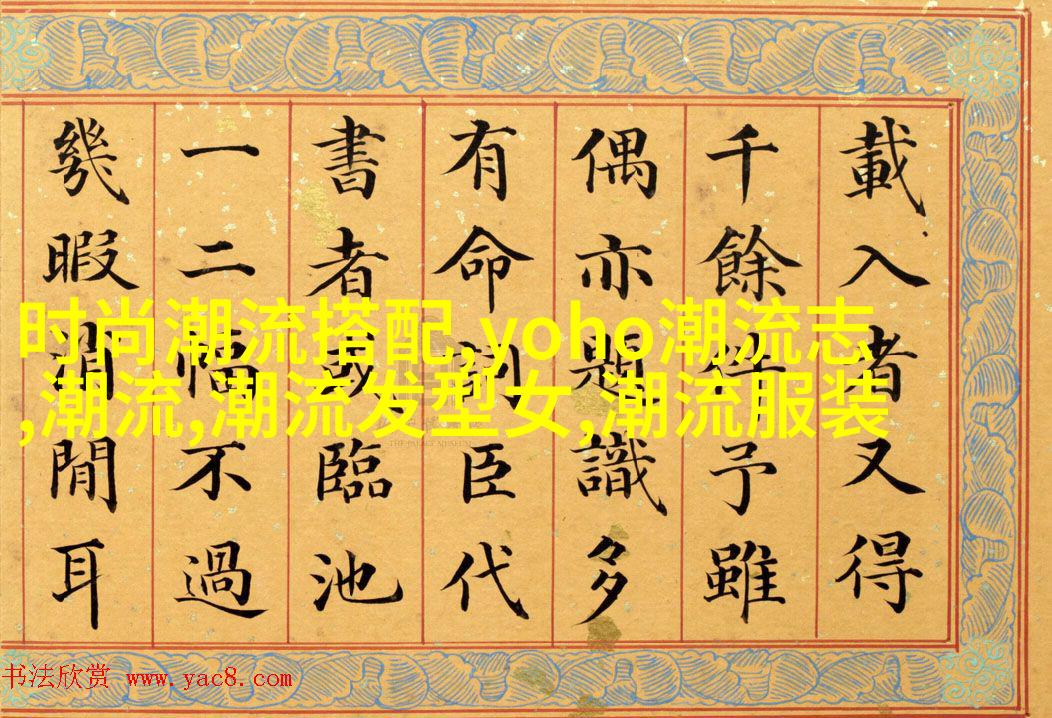 載入者又得
千餘件予雖
偶亦題識多
有命詞臣代
書者或臨池
一二幅不過
幾暇消閒耳
时尚潮流搭配,yoho潮流志
,潮流,潮流发型女,潮流服装
THE PALACE MUSEUM
书法欣赏 www.yac8.com